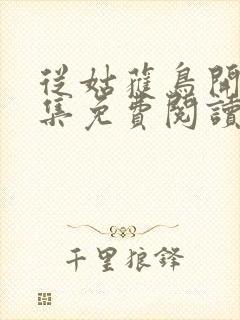 從姑蘿鳥開
集免費閱讀
千里狼鋒